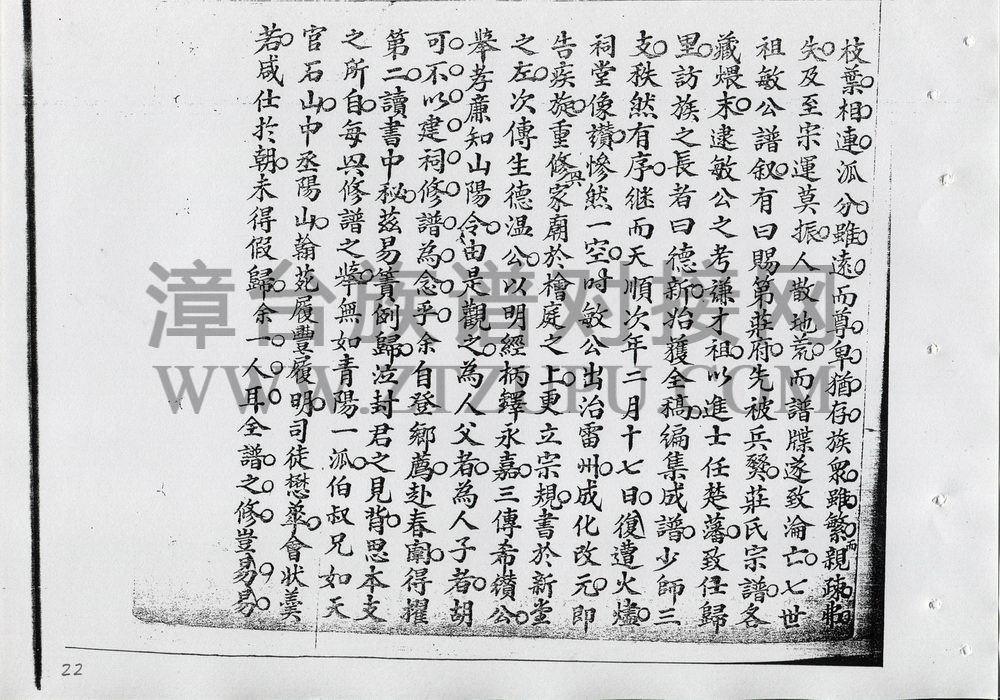 枝葉相連泒分雖遠而尊卑猶存族衆雖繁而親疎弗
失及至宗運莫振人散地荒而譜牒遂致淪亡七世
祖敏公譜叙有曰賜第莊府先被兵燹莊氏宗譜各
藏煨末逮敏公之考謙才祖以進士任楚藩致仕歸
里訪族之長者曰德新始獲全稿編集成譜少師三
支秩然有序继而天順次年二月十七日復遭火燼
祠堂像讚慘然一空時敏公出治雷州成化改元即
告疾旋重修與家廟於檜庭之上更立宗規書於新堂
之左次傳生德温公以明經柄鐸永嘉三傳希纉公
舉孝廉知山陽令由是觀之為人父者為人子者胡
可不以建祠修譜為念乎余自登鄉薦赴春闈得擢
第二讀書中秘兹易簀例歸泣封君之見背思本支
之所自每與修譜之舉無如青陽一泒伯叔兄如天
官石山中丞陽山翰苑履豐履明司徒懋𦤎會狀羹
若咸仕於朝未得假歸余一人耳全譜之修豈易易
漳台族谱对接网
WWW.ZTZUPU.COM
22